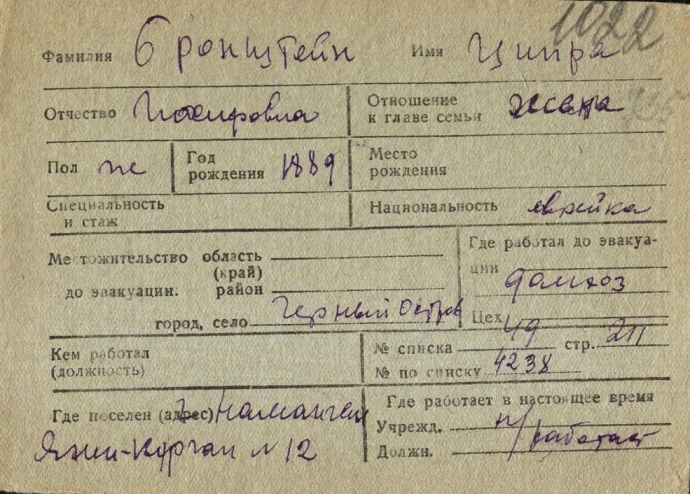 1022
Фамилия Бронштейн Имя Ципра
Отчество Иосифовна Отношение к главе семьи жена
Пол ж Год рождения 1889 Место рождения
Специальность и стаж Национальность еврейка
Местожительство область (край) до эвакуации. район город, село Черный Остров
Где работал до эвакуации домхоз
Цех
Кем работал (должность) № списка 49 стр. 211
№ по списку 4238
Где поселен (адрес) г. Наманген
Янги-Курган № 12
Где работает в настоящее время
Учрежд. н/работает
Должн.